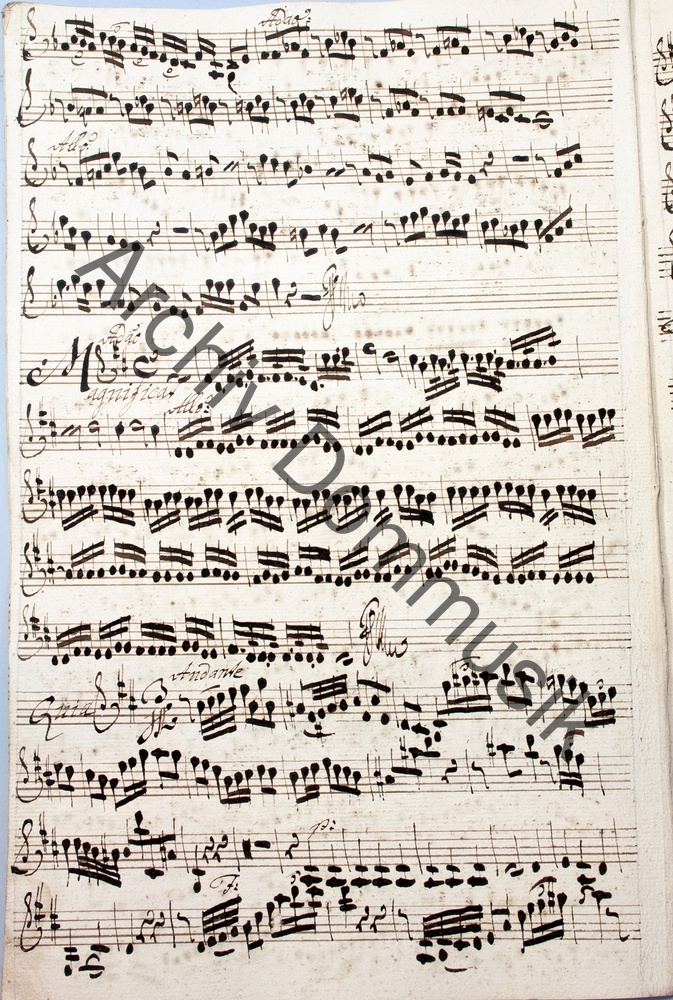 Adag:
Allo:
Adag:
Magnificat
Allo:
Andante
Quia
p:
F:
Archiv Dommusik